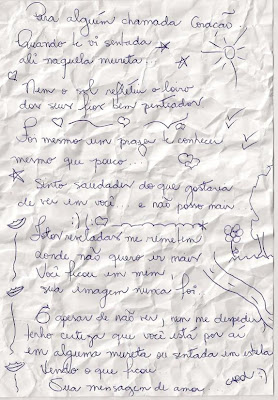 Para alguém chamada Coração.
Quando te vi sentada
ali naquela mureta...
Nem o sol refletiu o loiro
dos seus fios bem penteados
Foi mesmo um prazer te conhecer
mesmo que pouco...
Sinto saudades do que gostaria
de ver em você... e não posso mais
Fotos reveladas me
onde não quero ir mais
Você ficou em mim
sua imagem nunca foi...
E apesar de não ver, nem me despedir
tenho certeza que você está por aí
em alguma mureta ou sentada em estrela
Vendo o que ficou
Sua mensagem de amor
:)